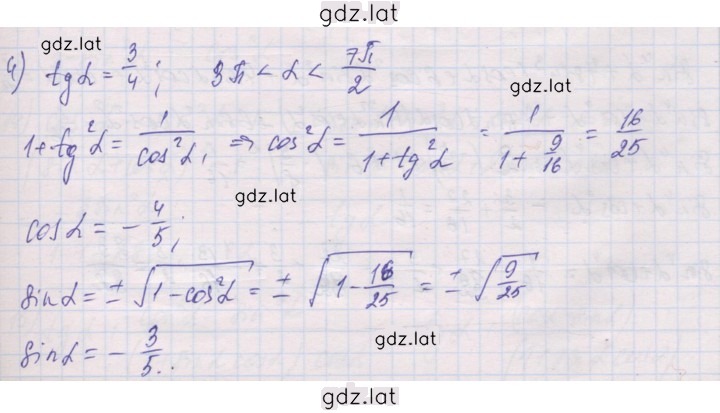 gdz.lat
gdz.lat
4) tg α = 3/4; 3π < α < 7π/2
gdz.lat
1 + tg²α = 1/cos²α, ⇒ cos²α = 1/(1 + tg²α) = 1/(1 + 9/16) = 16/25
gdz.lat
cos α = - 4/5;
sin α = ± √(1 - cos²α) = ± √(1 - 16/25) = ± √(9/25)
sin α = - 3/5.
gdz.lat
gdz.lat